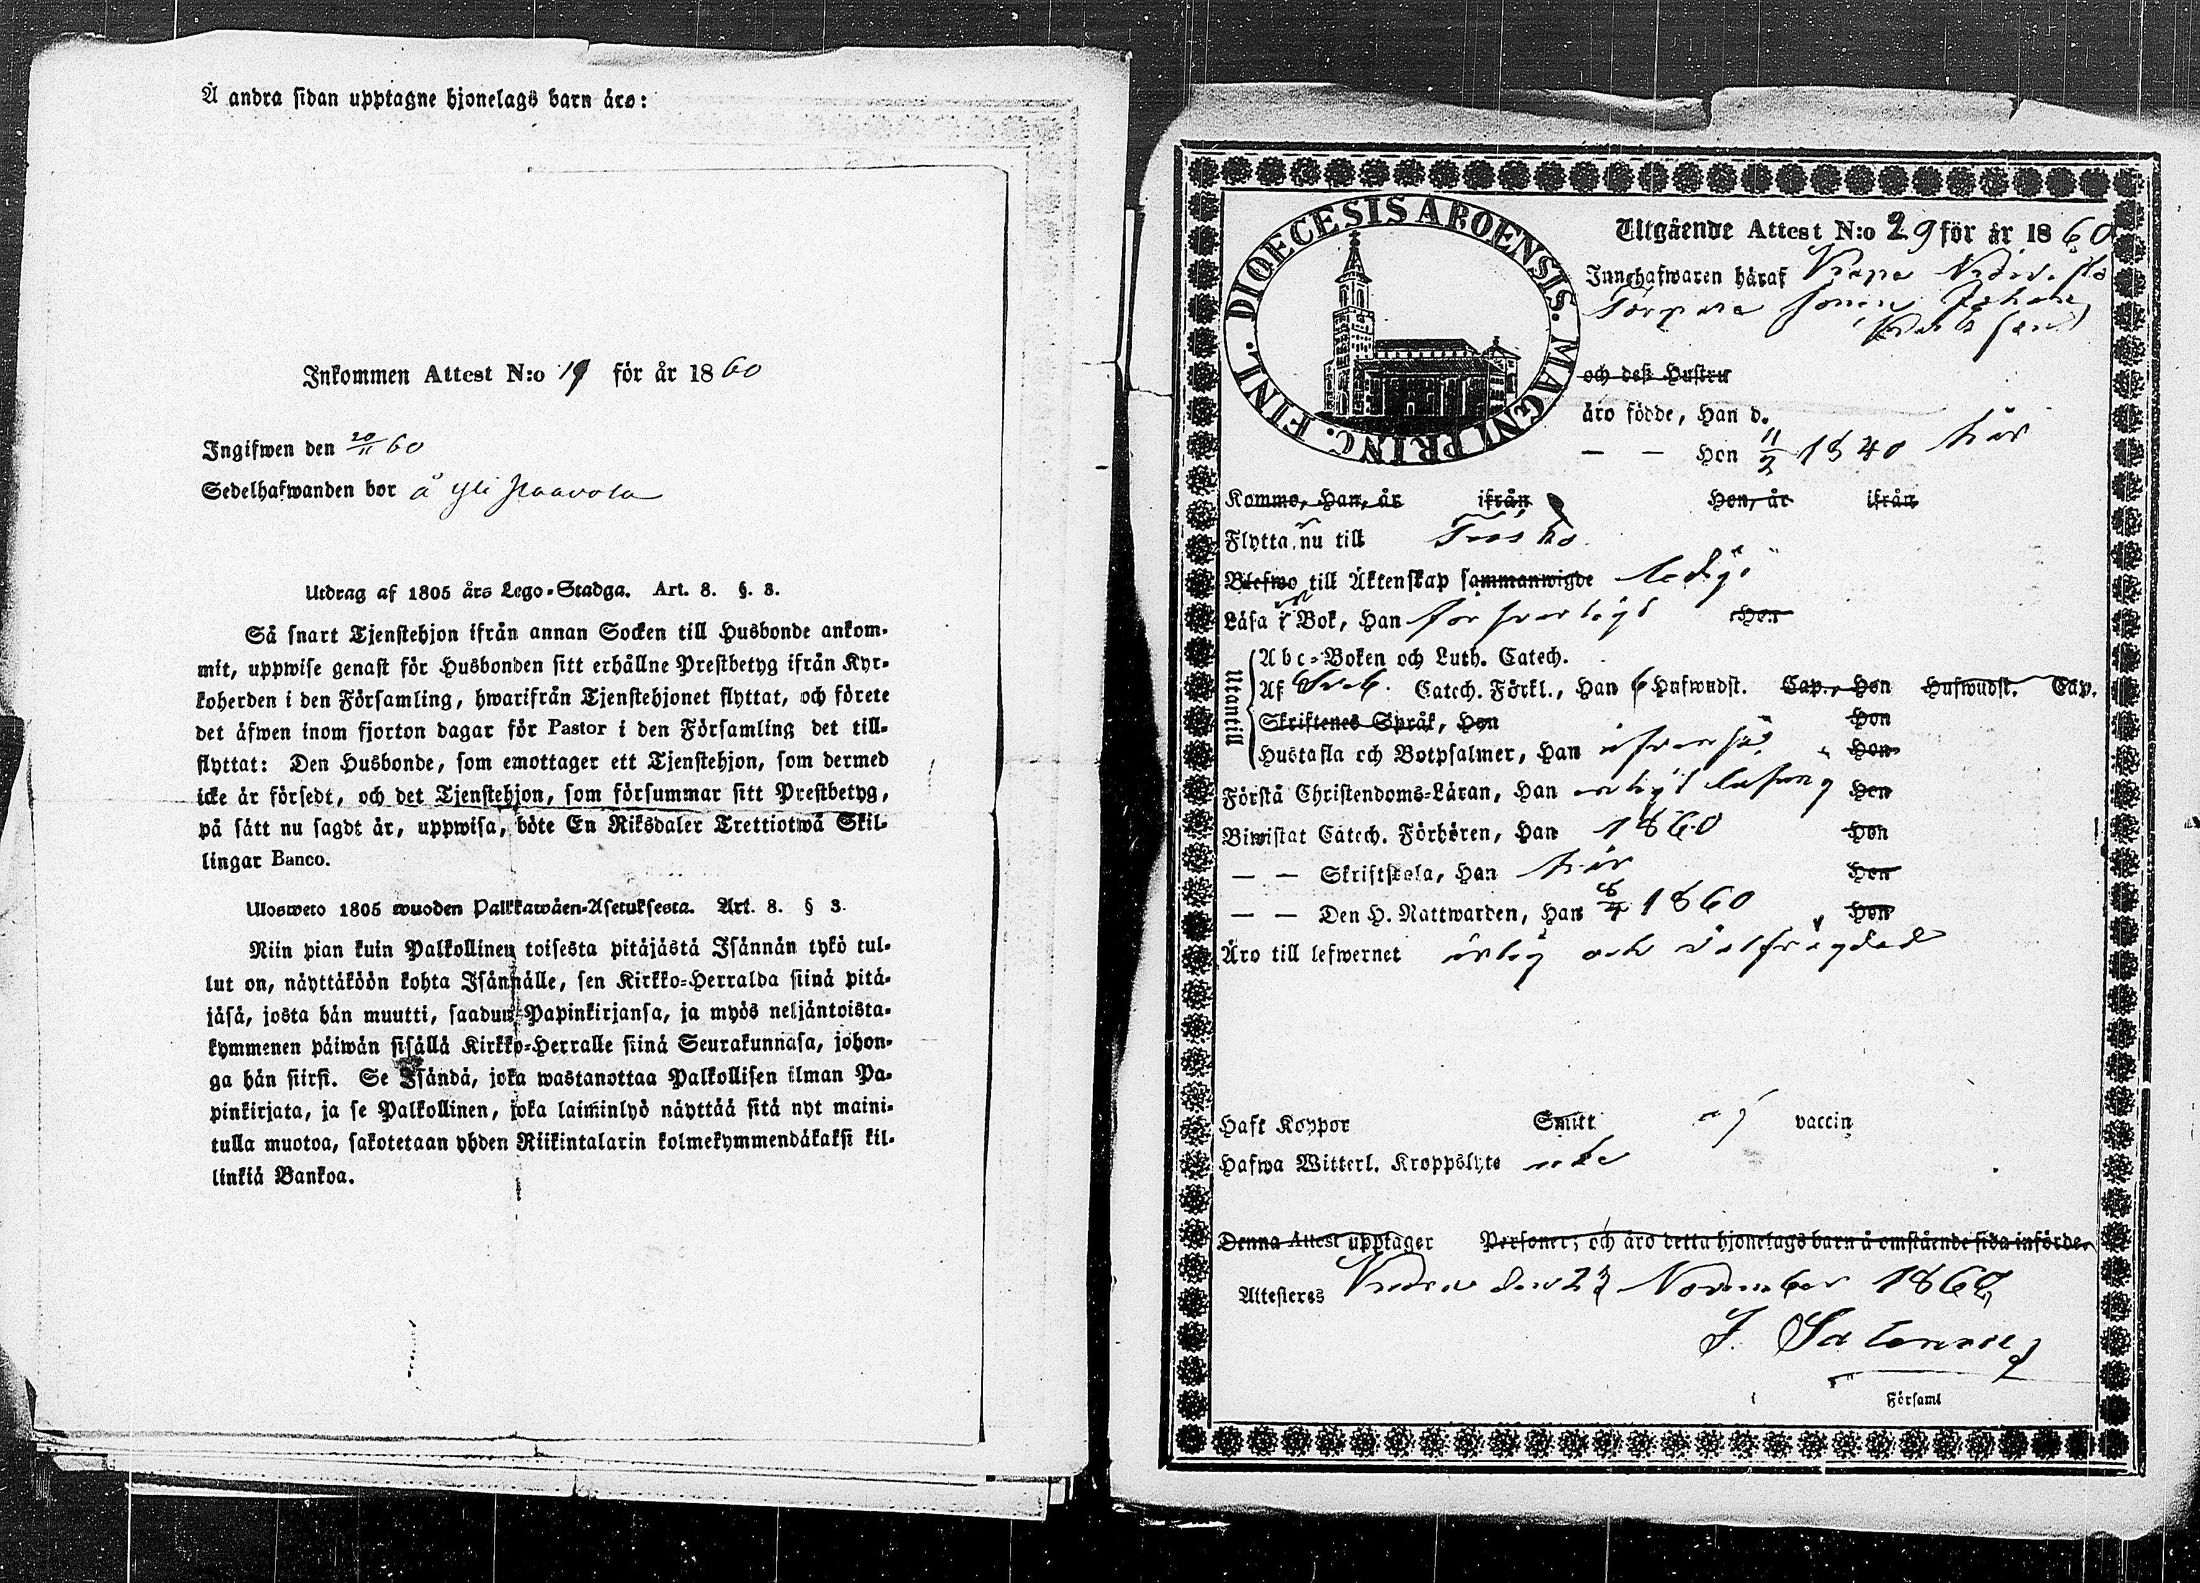 Å andra sidan upptagne hjonelags barn äro:
Inkommen Attest N:o 19 för år 1860
Ingifwen den 20/11 60
Sedelhafwanden bor å Yli
Utdrag af 1805 års Lego-Stadga. Art. 8. §. 3.
Så snart Tjenstehjon ifrån annan Socken till Husbonde ankom-
mit, uppwise genast för Husbonden sitt erhållne Prestbetyg ifrån Kyr-
koherden i den Församling, hwarifrån Tjenstehjonet flyttat, och förete
det äfwen inom fjorton dagar för Pastor i den Församling det till-
flyttat: Den Husbonde, som emottager ett Tjenstehjon, som dermed
icke är försedt, och det Tjenstehjon, som försummar sitt Prestbetyg,
på sätt nu sagdt är, uppwisa, böte En Riksdaler Trettiotwå Skil-
lingar Banco.
Ulosweto 1805 wuoden Palkkawäen-Asetuksesta. Art. 8. § 3.
Niin pian kuin Palkollinen toisesta pitäjästä Isännän tykö tul-
lut on, näyttäköön kohta Isännälle, sen Kirkko-Herralda siinä pitä-
jäsä, josta hän muutti, saadun Papinkirjansa, ja myös neljäntoista-
kymmenen päiwän sisällä Kirkko-Herralle siinä Seurakunnasa, johon-
ga hän siirsi. Se Isändä, joka wastanottaa Palkollisen ilman Pa-
pinkirjata, ja se Palkollinen, joka laiminlyö näyttää sitä nyt maini-
tulla muotoa, sakotetaan yhden Riikintalarin kolmekymmendäkaksi kil-
linkiä Bankoa.
FINL. DIOECESIS ABOENSIS. MAGNI PRINC.
Utgående Attest N:o 29 för år 1860
Innehafwaren häraf
sonen Johan
och dess Hustru
äro födde, Han d.
— — Hon 11/2 1840 här
Komme, Han, år ifrån Hon, år ifrån
Flytta nu till
Blefwo till Äktenskap sammanwigde ledig
Läsa i Bok, Han försvarligt Hon
Utantill
Abc-Boken och Luth. Catech.
Af Catech. Förkl., Han 6 Hufwudst. Cap., Hon Hufwudst. Cap.
Skriftenes Språk, Han Hon
Hustafla och Botpsalmer, Han Hon
Förstå Christendoms-Läran, Han Hon
Biwistat Catech. Förhören, Han 1860 Hon
— — Skriftskola, Han här Hon
— — Den H. Nattwarden, Han 1860 Hon
Äro till lefwernet ärlig och välfrägdad
Haft Koppor Smitt vaccin
Hafwa Witterl. Kroppslyte icke
Denna Attest upptager Personer; och äro detta hjonelags barn å omstående sida införde.
Attesteras den 23 November 1860
J.
Församl